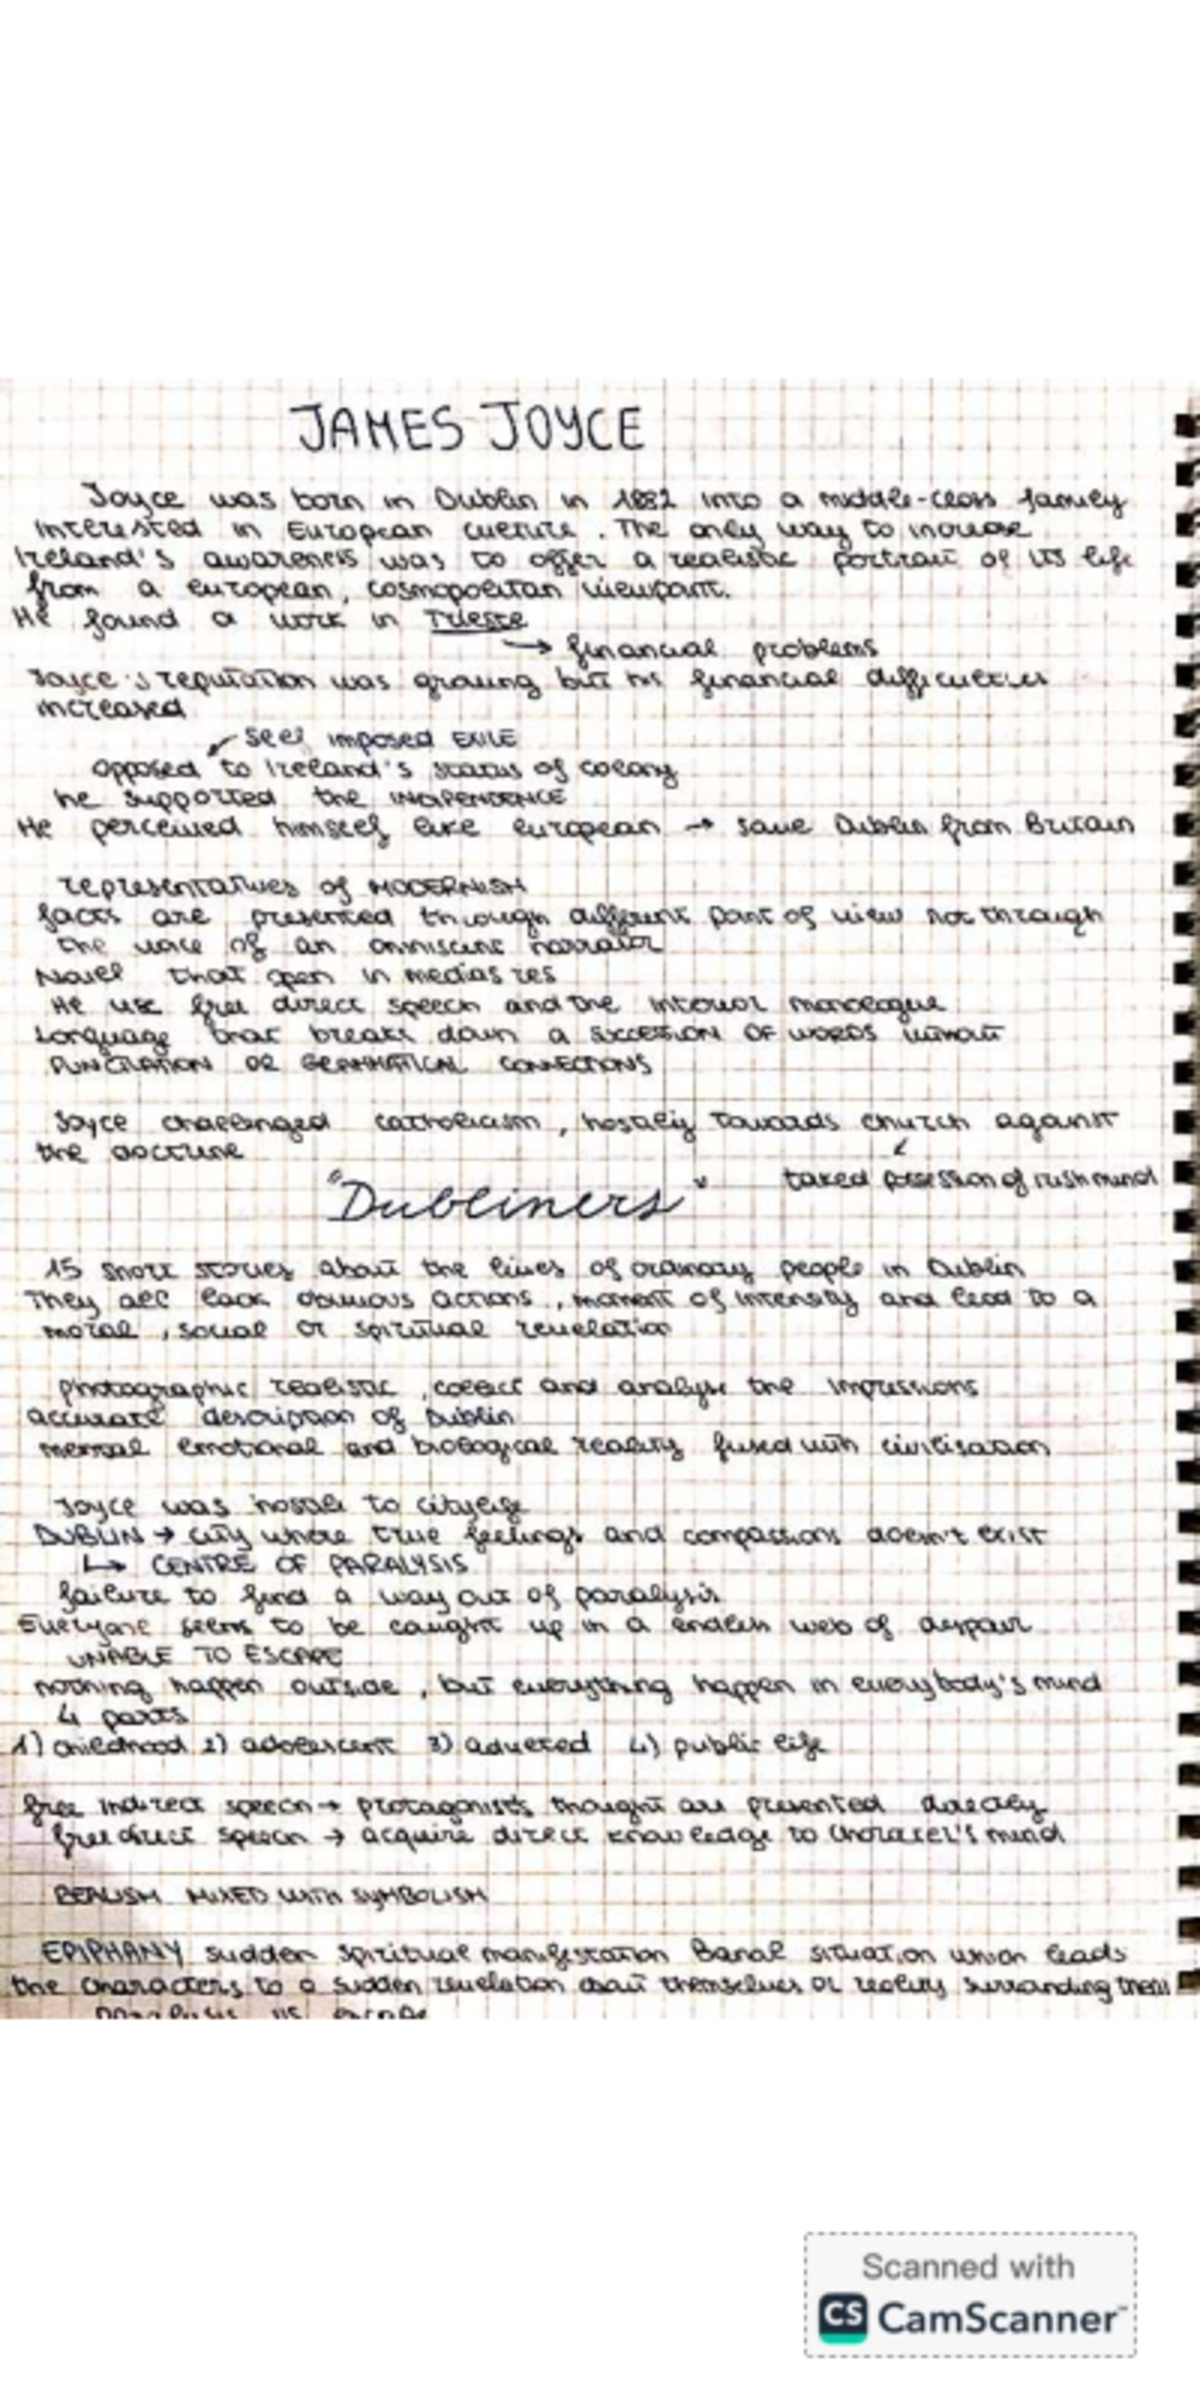 JAMES JOYCE
Joyce was born in Dublin in 1882 into a middle-class family
interested in European culture. The only way to increase
Ireland's awareness was to offer a realistic portrait of its life
from a european, cosmopolitan viewpoint.
He found a work in Trieste
→ financial problems
Joyce's reputation was growing but his financial difficulties
increased
↙ self imposed EXILE
opposed to Ireland's status of colony
he supported the INDIPENDENCE
He perceived himself like european → save Dublin from Britain
representatives of MODERNISM
facts are presented through different point of view not through
the voice of an omniscient narrator
Novel that open in medias res
He use free direct speech and the interior monologue
Language that breaks down a SUCCESSION OF WORDS without
PUNCTUATION OR GRAMMATICAL CONNECTIONS
Joyce challenged catholicism, towards church against
the doctrine
↙
taked possession of irish mind
"Dubliners"
15 short stories about the lives of ordinary people in Dublin
They all lack obvious actions, moment of intensity and lead to a
moral, social or spiritual revelation
photographic realistic, collect and analyse the impressions
accurate description of Dublin
mental emotional and biological reality fused with civilisation
Joyce was to citylife
DUBLIN → city where true feelings and compassions doesn't exist
↳ CENTRE OF PARALYSIS
failure to find a way out of paralysis
Everyone seems to be caught up in a endless web of despair
UNABLE TO ESCAPE
nothing happen outside, but everything happen in everybody's mind
4 parts
1) childhood 2) adolescent 3) 4) public life
free indirect speech → protagonists thought are presented directly
free direct speech → acquire direct knowledge to mind
REALISM MIXED WITH SYMBOLISM
EPIPHANY sudden spiritual manifestation Banal situation which leads
the characters to a sudden revelation about themselves or reality surrounding them
paralysis vs escape
Scanned with
CS CamScanner™